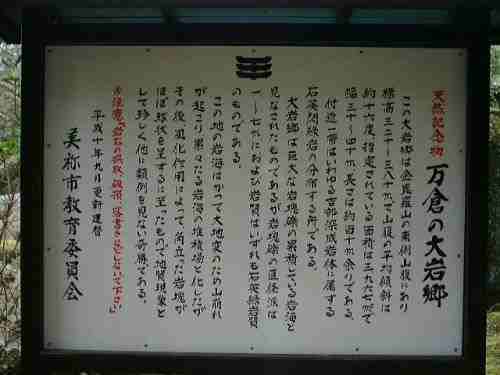 天然記念物 万倉の大岩郷
この大岩郷は金毘羅山の東側山腹にあり
標高三二十~三八十㍍で山腹の平均傾斜は
約十六度 指定されている面積は三九六七㎡で
幅三十~四十㍍ 長さは約百四十㍍余りである。
付近一帯はいわゆる宇部深成岩体に属する
石英閃緑岩の分布する所である。
大岩郷は巨大な岩塊礫の累積している岩海と
見なされたものであるが岩塊礫の直径派は
一~七㍍におよび岩質はいずれも石英閃緑岩質
のものである。
この地の岩海はかつて大地変のため山崩れ
が起こり累々たる岩海の堆積場と化したが
その後風化作用によって角立った岩塊が
ほぼ球状を呈するに至ったもので地質現象と
して珍しく他に類例を見ない奇勝である。
※注意 岩石の採取、破損、落書き等しないで下さい
平成十年九月更新建替
美祢市教育委員会